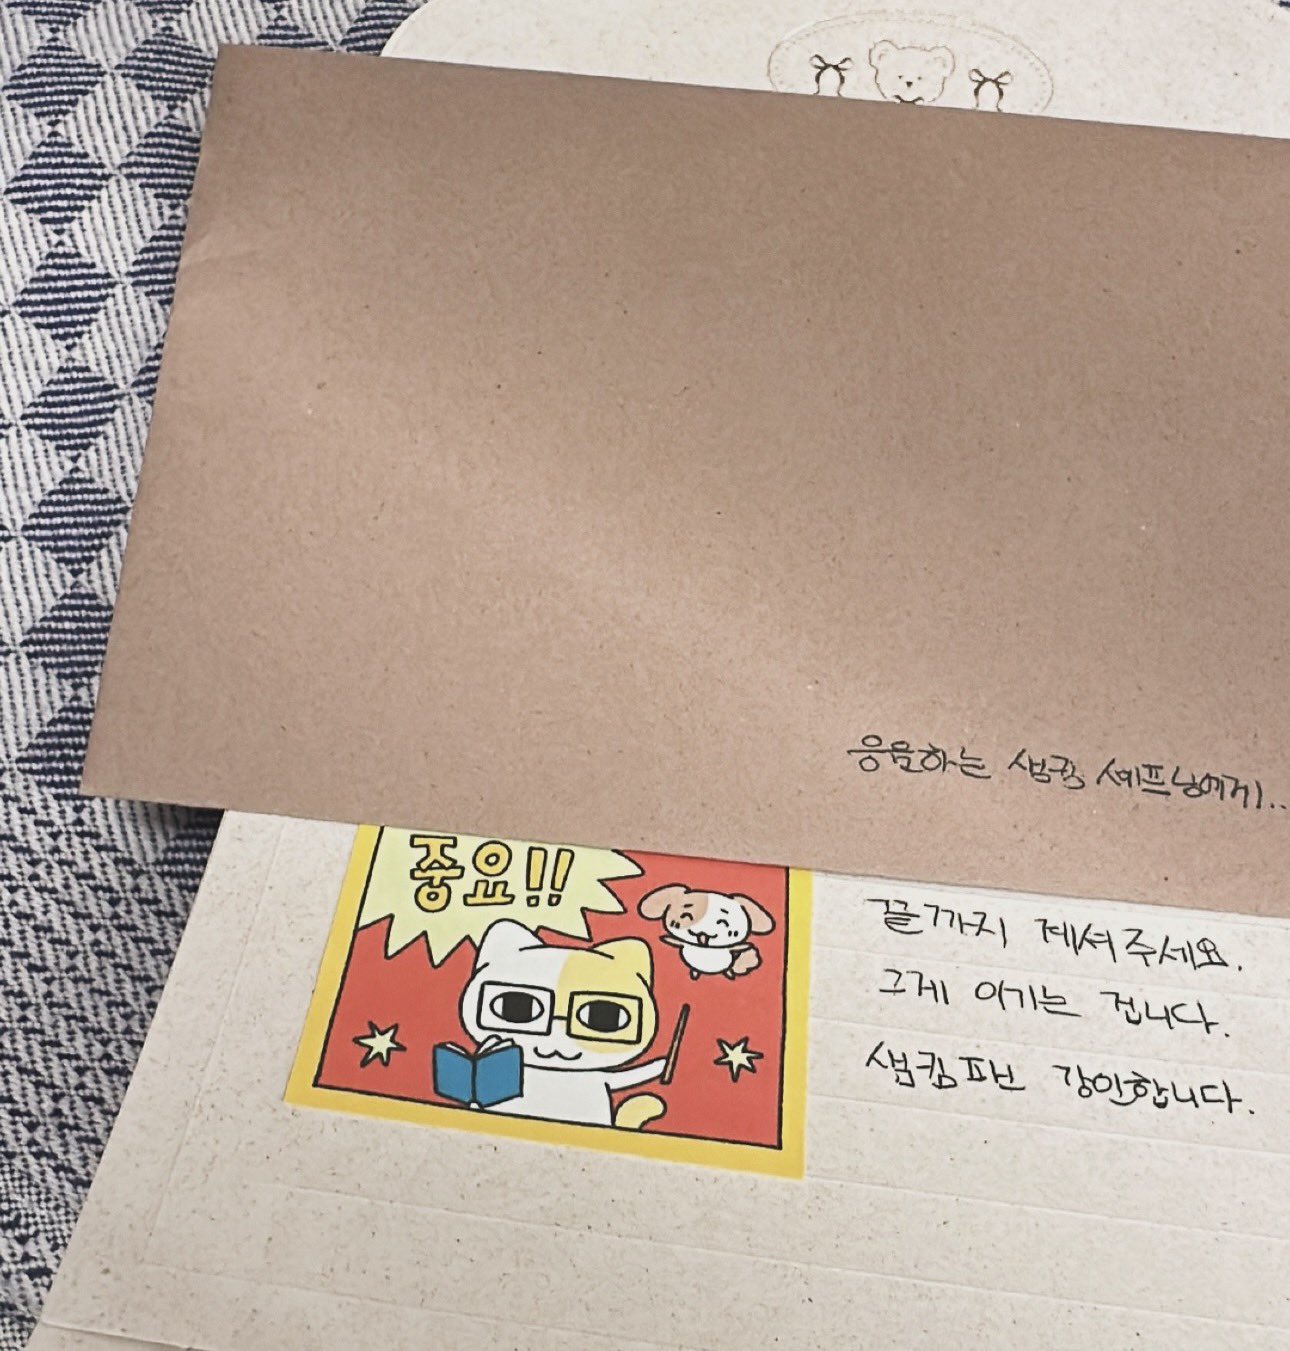 응원하는 샘킴 셰프님에게..
중요!!
끝까지 계셔주세요.
그게 이기는 겁니다.
샘킴팬 강인합니다.